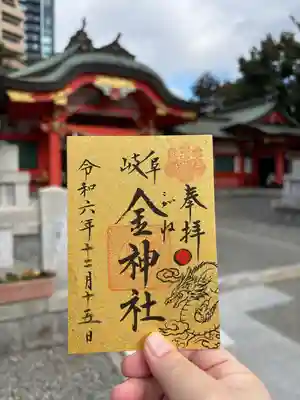 奉拝
岐阜
こがね
金神社
令和六年十二月十五日